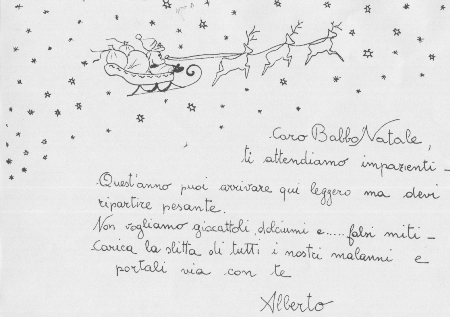 Caro Babbo Natale,
ti attendiamo impazienti -
Quest'anno puoi arrivare qui leggero ma devi
ripartire pesante.
Non vogliamo giocattoli, dolciumi e.....falsi miti -
Carica la slitta di tutti i nostri malanni e
portali via con te
Alberto